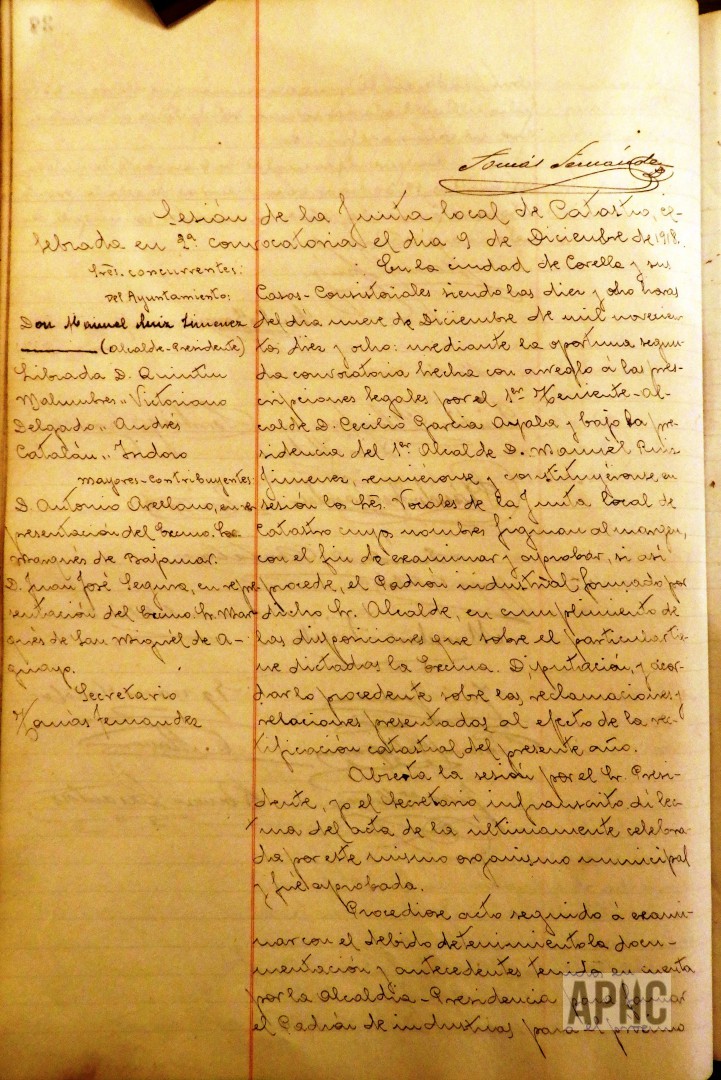 Tomás Fernández
Sesión de la Junta local de Catastro, ce-
lebrada en 2ª convocatoria el dia 9 de Diciembre de 1918.
Sres. concurrentes:
Del Ayuntamiento:
Don Manuel Ruiz Jimenez
(Alcalde-Presidente)
Librada D. Quintin
Malumbres " Victoriano
Delgado " Andrés
Catalán " Isidoro
Mayores-contribuyentes:
D. Antonio Arellano, en re-
presentación del Excmo. Sor.
Marqués de Bajamar.
D. Juan José Segura, en repre-
sentación del Excmo. Sr. Mar-
qués de San Miguel de A-
guayo.
Secretario
Tomás Fernandez
En la ciudad de Corella y sus
Casas-Consistoriales siendo las diez y ocho horas
del dia nueve de Diciembre de mil novecien-
tos diez y ocho: mediante la oportuna segun-
da convocatoria hecha con arreglo á las pres-
cripciones legales por el 1er Teniente-Al-
calde D. Cecilio Garcia Ayala y bajo la pre-
sidencia del 1er Alcalde D. Manuel Ruiz
Jimenez, reuniéronse y constituyéronse en
sesión los Sres. Vocales de la Junta local de
Catastro cuyos nombres figuran al margen,
con el fin de examinar y aprobar, si asi
procede, el Padrón industrial formado por
dicho Sr. Alcalde, en cumplimiento de
las disposiciones que sobre el particular tie-
ne dictadas la Excma. Diputación, y acor-
dar lo procedente sobre las reclamaciones y
relaciones presentadas al efecto de la rec-
tificación catastral del presente año.
Abierta la sesión por el Sr. Presi-
dente, yo el Secretario infrascrito di lec-
tura del acta de la últimamente celebra-
da por este mismo organismo municipal
y fué aprobada.
Procediose acto seguido á exami-
nar con el debido detenimiento la docu-
mentación y antecedentes tenido en cuenta
por la Alcaldia-Presidencia para formar
el Padrón de industrias para el próximo
APHC